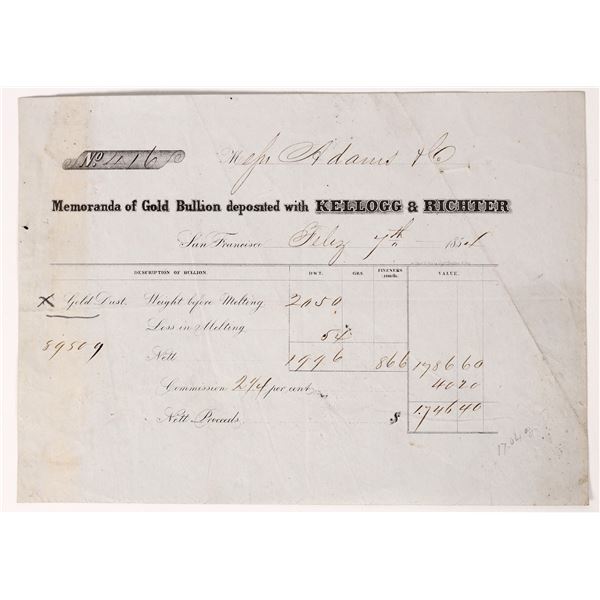 No 416
Messrs Adams & Co
Memoranda of Gold Bullion deposited with KELLOGG & RICHTER
San Francisco Feby 7th 1854
DESCRIPTION OF BULLION. DWT. GRS. FINENESS VALUE.
X Gold Dust. Weight before Melting 2050
Loss in Melting 54
89509 Nett 1996 866 1786 60
Commission 2 1/4 per cent 40 20
Nett Proceeds $ 1746 40